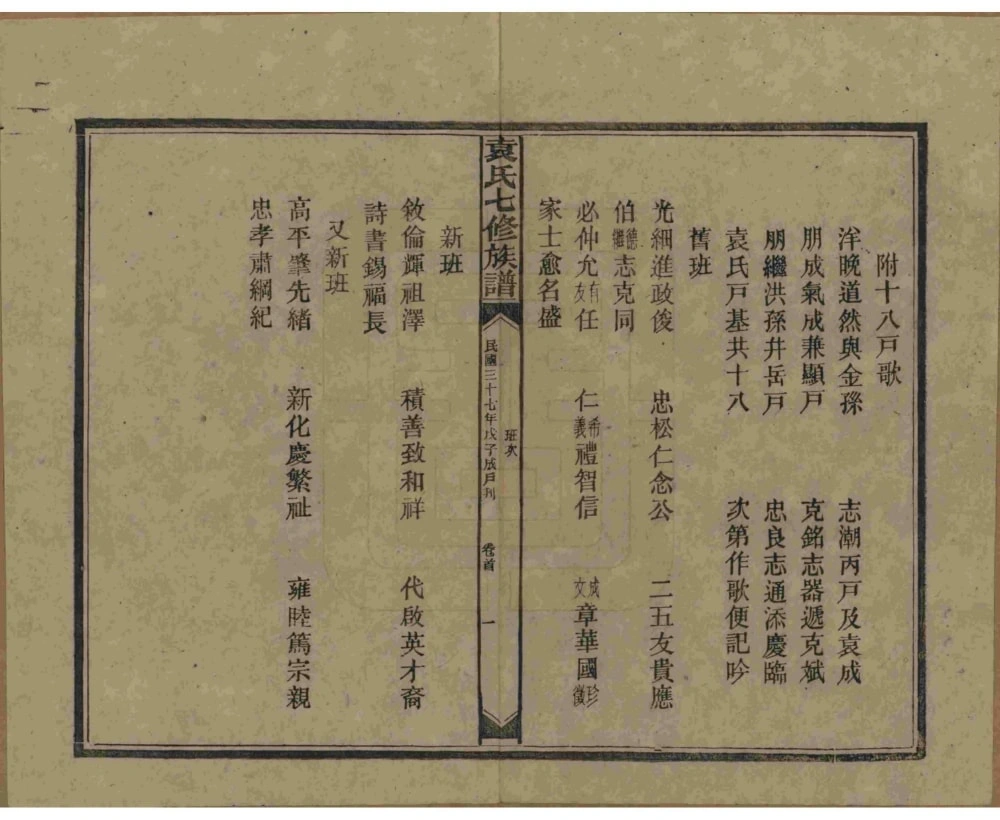 附十八戶歌
洋晚道然與金孫　志潮丙戶及袁成
朋成氣成兼顯戶　克銘志器遞克斌
朋繼洪孫井岳戶　忠良志通添慶臨
袁氏戶基共十八　次第作歌便記吟
舊班
光細進政俊　忠松仁念公　二五友貴應
伯德繼志克同
必仲允有友任　仁希義禮智信　成文章華國珍徵
家士愈名盛
袁氏七修族譜　班次　民國三十七年戊子成戶刊　卷首　一
新班
敘倫輝祖澤　積善致和祥　代啟英才裔
詩書錫福長
又新班
高平肇先緒　新化慶繁祉　雍睦篤宗親
忠孝肅綱紀